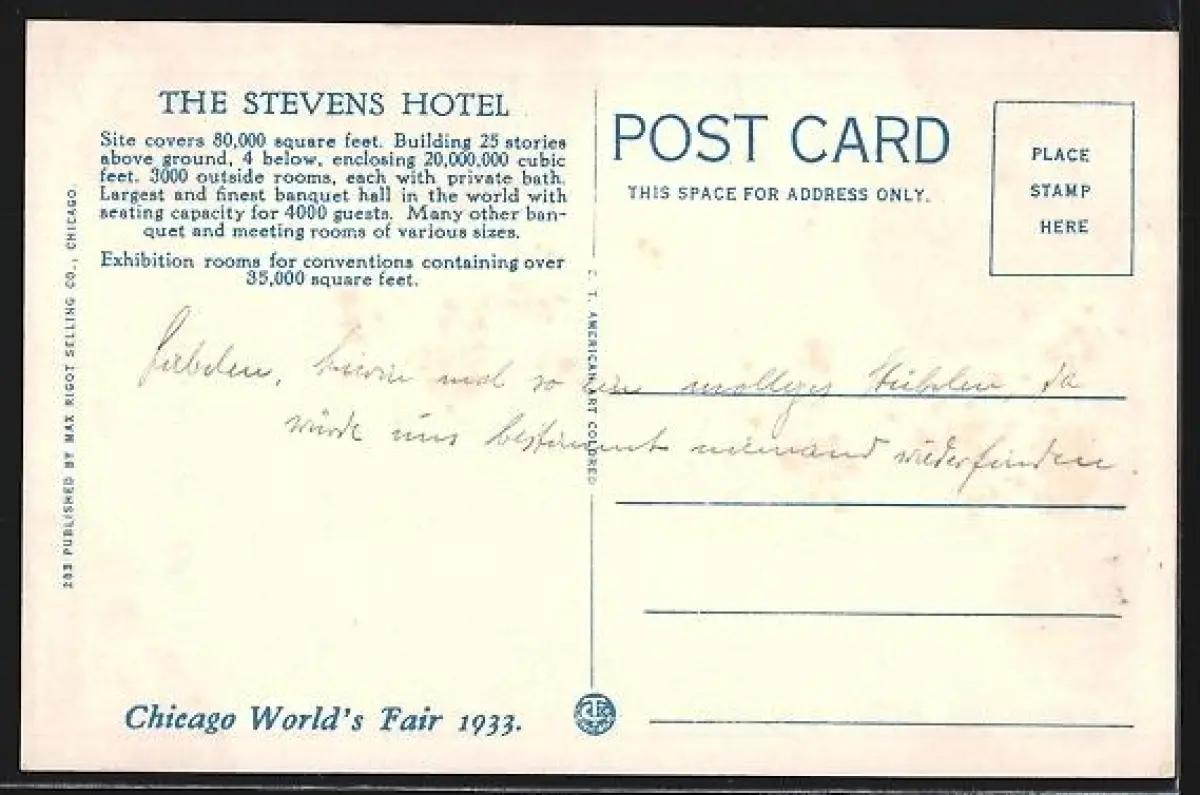 THE STEVENS HOTEL
Site covers 80,000 square feet. Building 25 stories
above ground, 4 below, enclosing 20,000,000 cubic
feet. 3000 outside rooms, each with private bath.
Largest and finest banquet hall in the world with
seating capacity for 4000 guests. Many other ban-
quet and meeting rooms of various sizes.
Exhibition rooms for conventions containing over
35,000 square feet.
203 PUBLISHED BY MAX RIGOT SELLING CO., CHICAGO.
C. T. AMERICAN ART COLORED
POST CARD
THIS SPACE FOR ADDRESS ONLY.
PLACE
STAMP
HERE
so ein molliges Stübchen, da
würde uns bestimmt niemand wiederfinden.
Chicago World's Fair 1933.